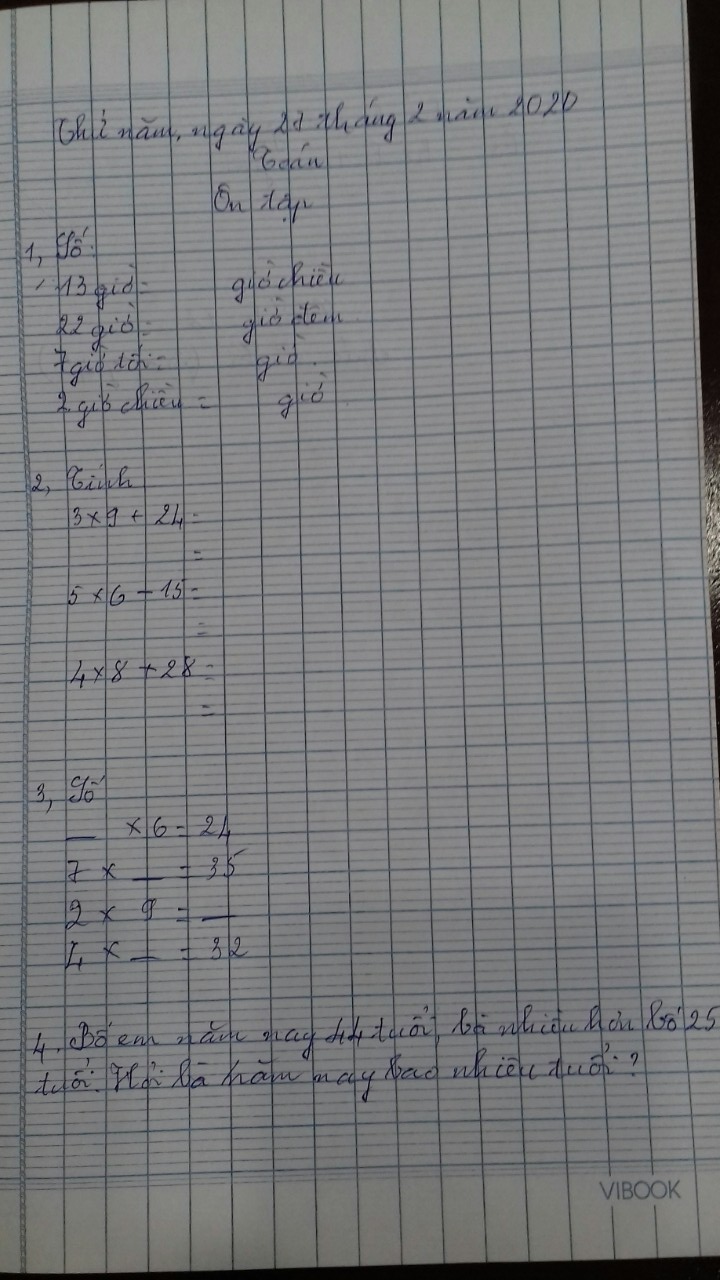 Thứ năm, ngày 27 tháng 2 năm 2020
Toán
Ôn tập
1, Số
13 giờ = giờ chiều
22 giờ = giờ đêm
7 giờ tối = giờ
2 giờ chiều = giờ
2, Tính
3 x 9 + 24 =
=
5 x 6 - 15 =
=
4 x 8 + 28 =
=
3, Số
_ x 6 = 24
7 x _ = 35
2 x 9 = _
4 x _ = 32
4. Bố em năm nay 44 tuổi, bà nhiều hơn bố 25
tuổi. Hỏi bà năm nay bao nhiêu tuổi?
VIBOOK